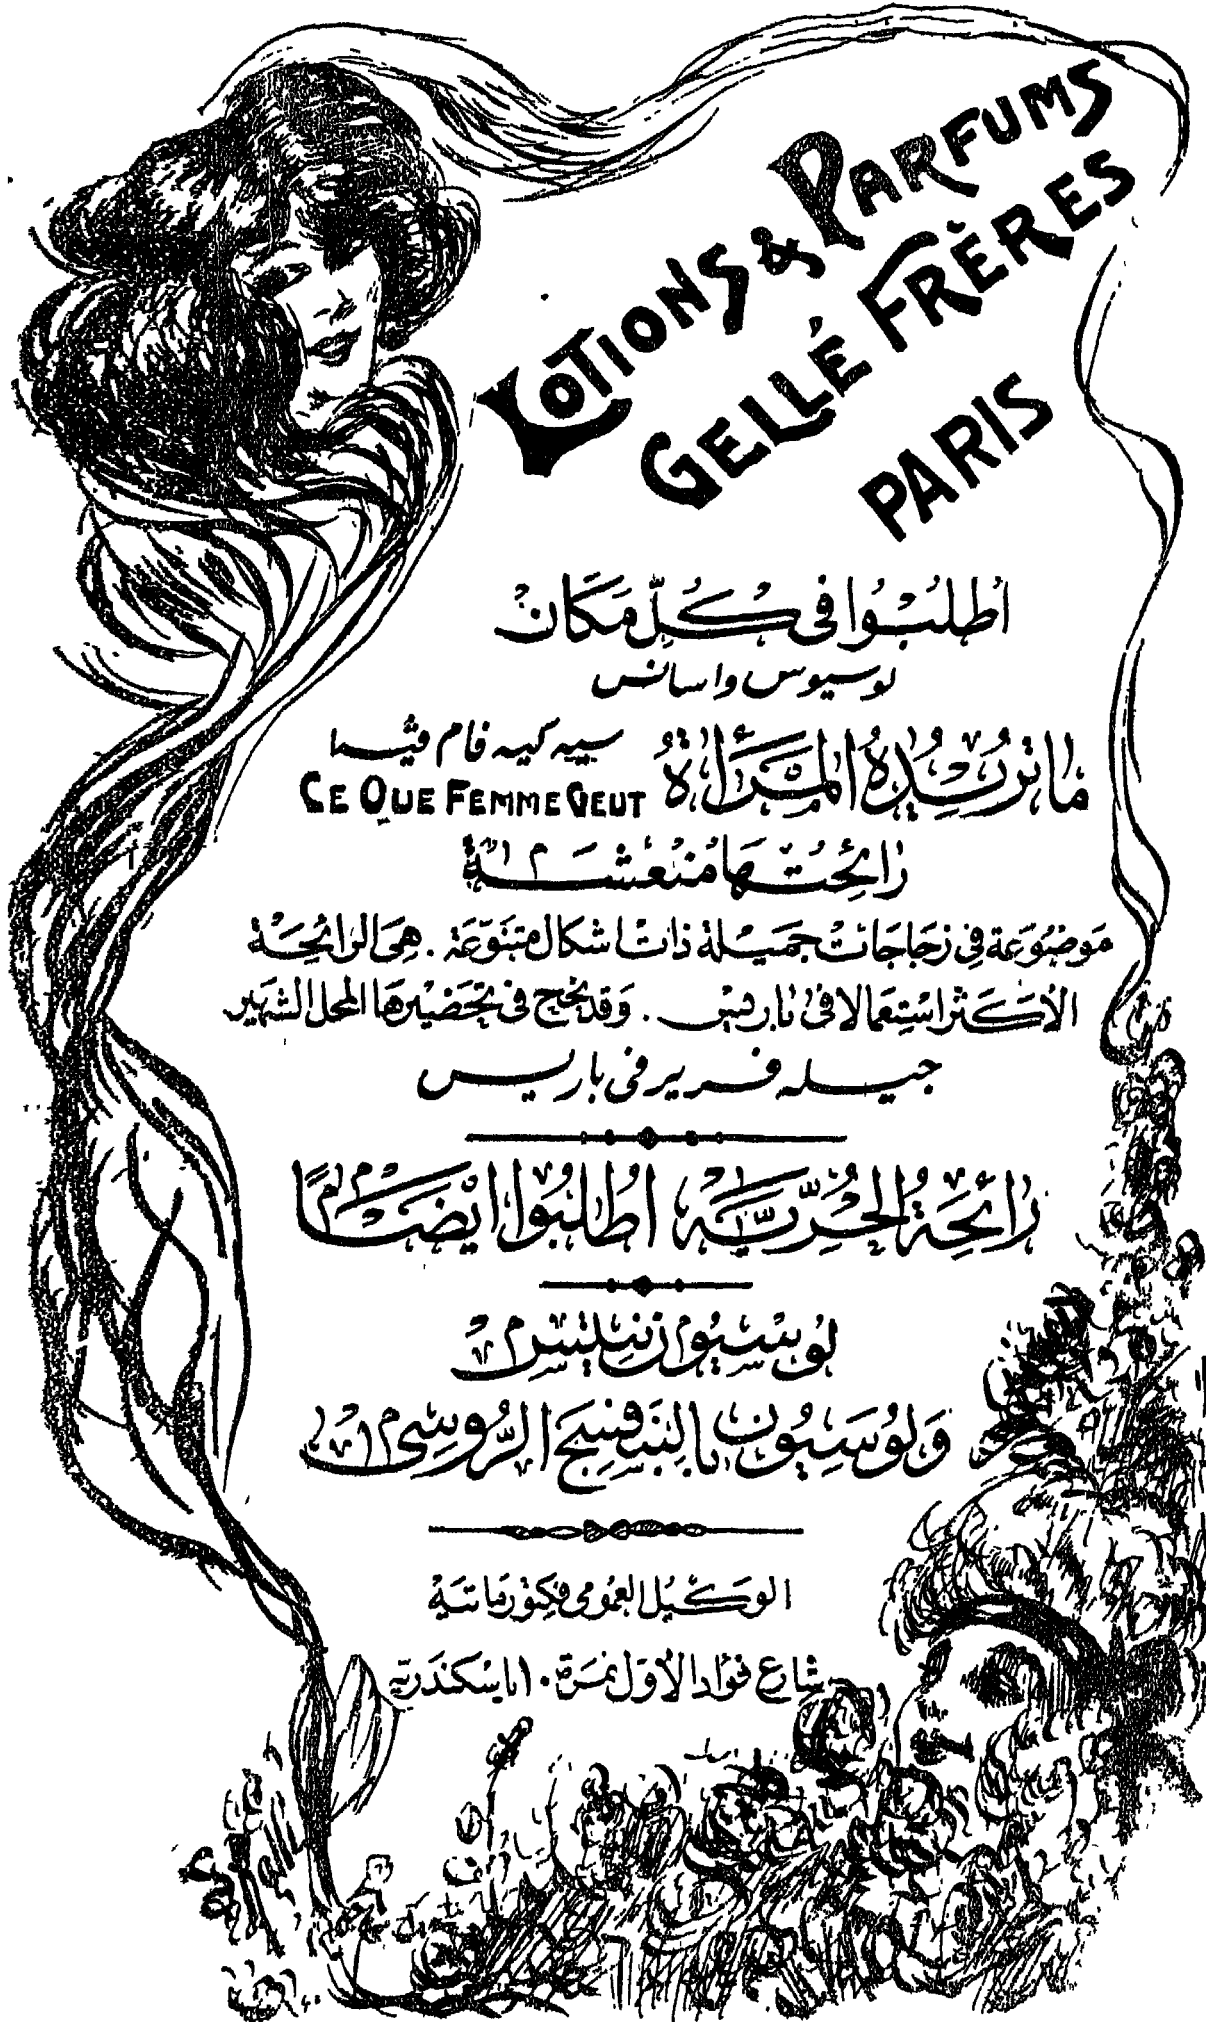 LOTIONS & PARFUMS
GELLÉ FRÈRES
PARIS
أُطلبُوا في كُلِّ مَكَان
لوسيوس واسانس
ما تُرِيْدُهُ المَرْأَة
سييه كيه فام فيه
CE QUE FEMME VEUT
رَائِحتُهَا مُنعشَة
مَوضُوعَة في زجَاجَات جَميْلة ذات اشكال متنَوّعَة . هِيَ الرَائِحَة
الأكثَر اسْتِعمَالا في باريس . وَقد نجح في تحضيْرهَا المحل الشهَير
جيله فرير في باريس
رَائِحَةُ الحُرِّيَّه أُطلبُوا ايْضَاً
لوسْيُون نيليس
وَلوُسَيُون بالبنَفسَج الرُّوسِي
الوَكيْل العمُومي فِكتوْر مَاتتيَه
شارع فؤاد الأوَل نمرَة ١٠ باسْكندَرية